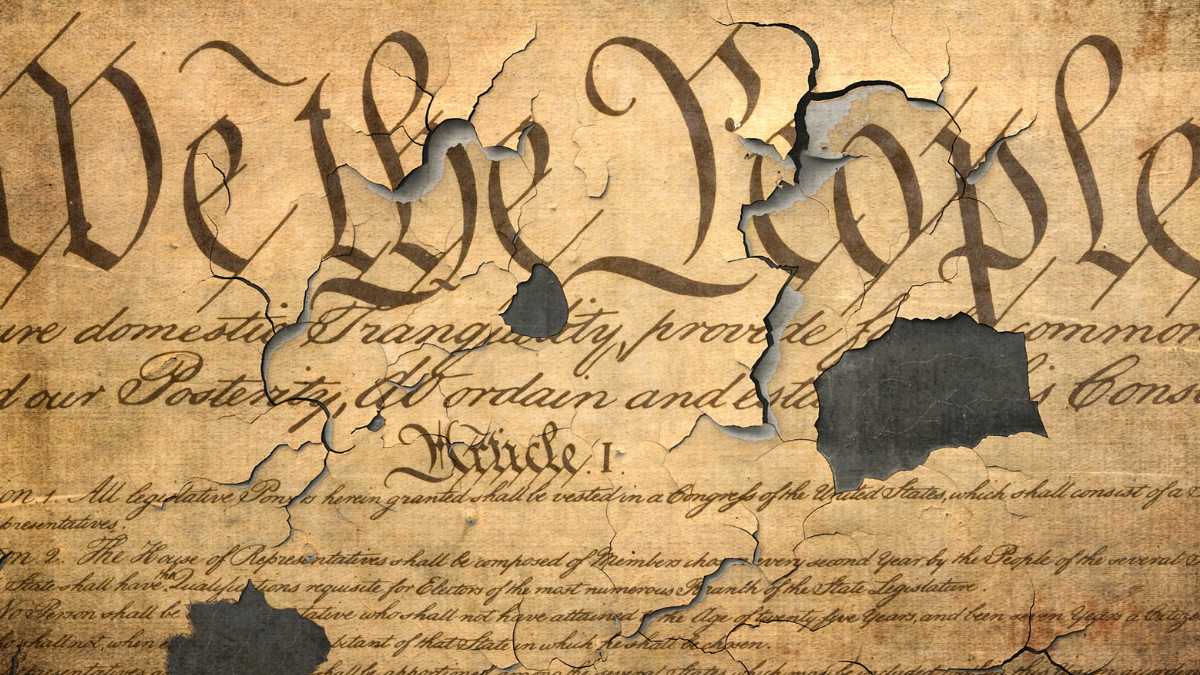 We the People
ure domestic Tranquility, provide common
d our Posterity, do ordain and Cons
Article. I.
on. 1. All legislative Powers herein granted shall be vested in a Congress of the United States, which shall consist of a
presentatives.
on. 2. The House of Representatives shall be composed of Members every second Year by the People of the several
State shall have the Qualifications requisite for Electors of the most numerous Branch of the State Legislature.
No Person shall be tative who shall not have attained the Age of twenty five Years, and been seven Years a Citiz
shall not, when e bitant of that State in which he shall be chosen.
shall be apportioned among the several States which may be included within this Union,